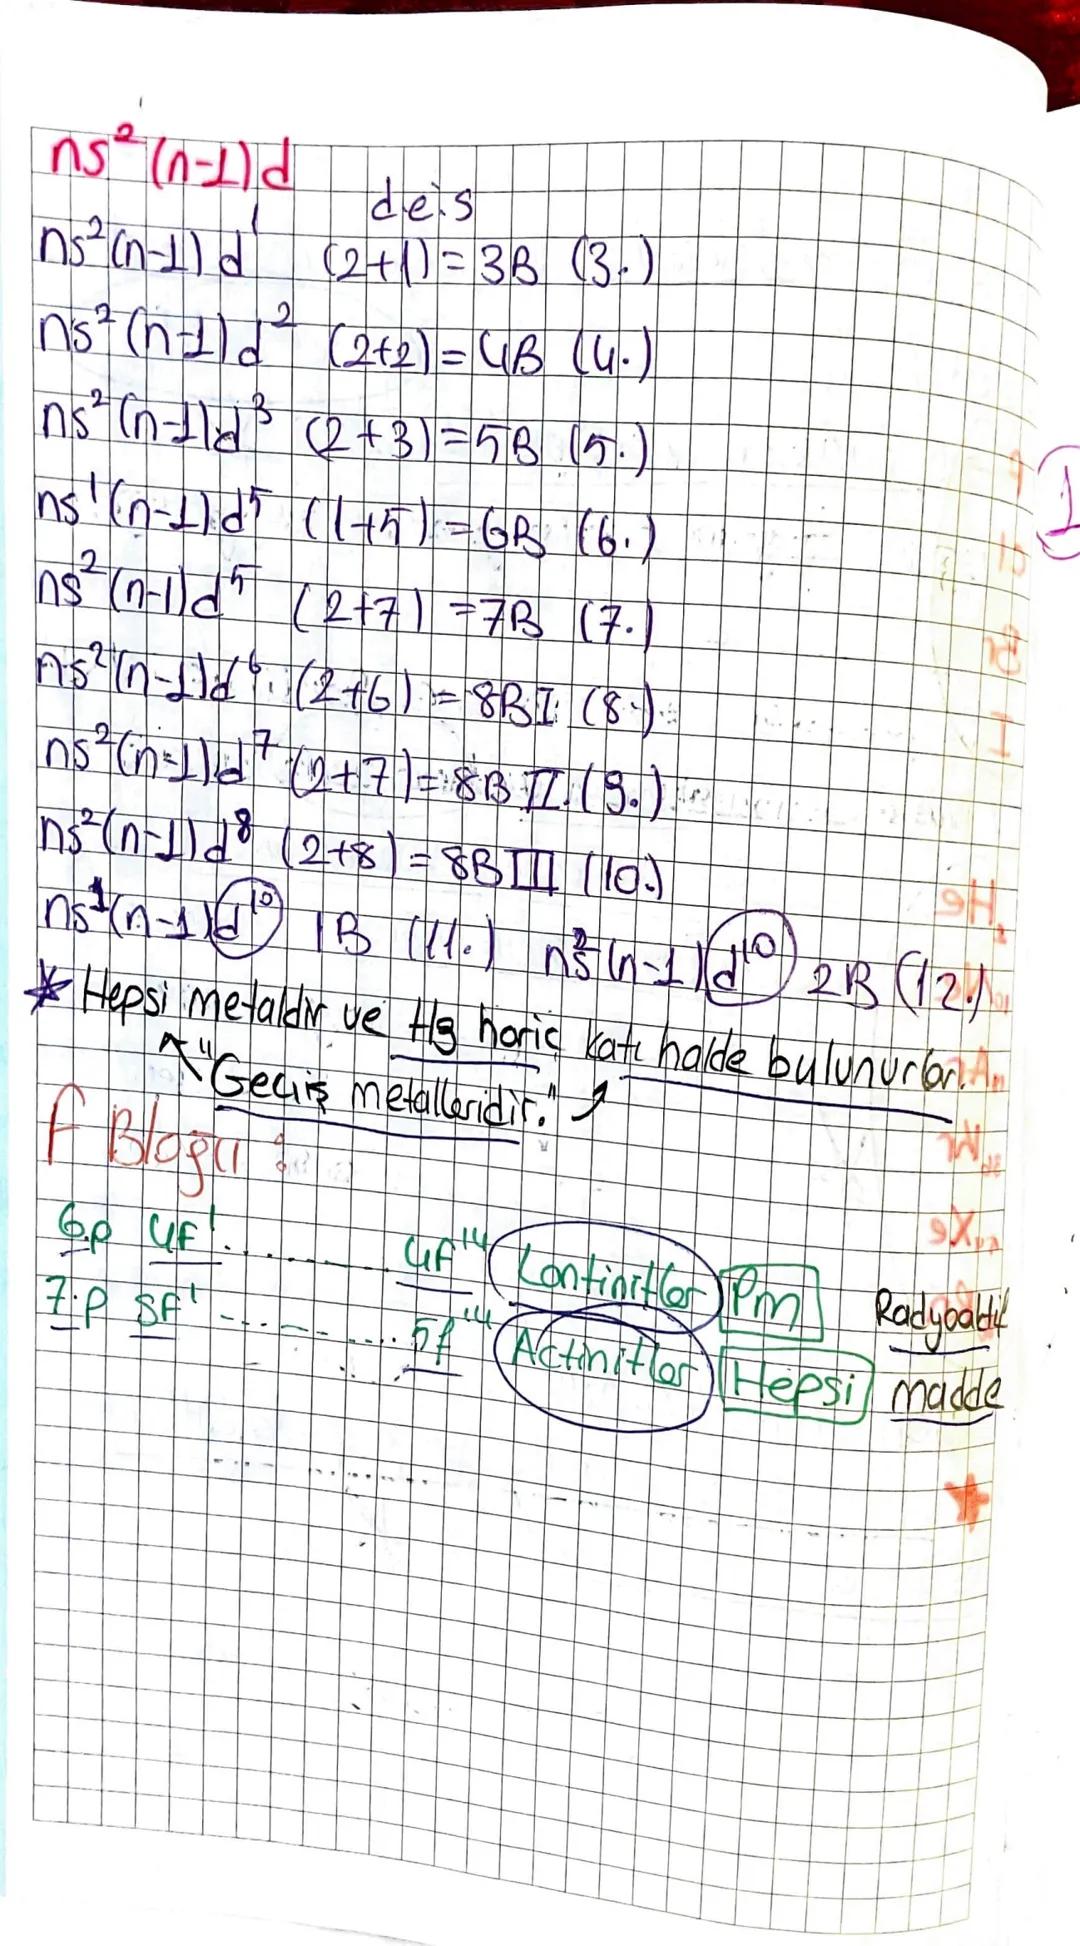 ns²(n-1)d
de:s
ns²(n-1)d¹ (2+1)=3B (3.)
ns²(n-1)d² (2+2)=4B (4.)
ns²(n-1)d³ (2+3)=5B (5.)
ns¹(n-1)d⁵ (1+5)=6B (6.)
ns²(n-1)d⁵ (2+7)=7B (7.)
ns²(n-1)d⁶ (2+6)=8B I (8.)
ns²(n-1)d⁷ (2+7)=8B II (9.)
ns²(n-1)d⁸ (2+8)=8B III (10.)
ns¹(n-1)d¹⁰ 1B (11.) ns²(n-1)d¹⁰ 2B (12.)
* Hepsi metaldir ve Hg hariç katı halde bulunurlar.
"Geciş metalleridir."
f Bloğu :
6.p 4f¹ .......... 4f¹⁴ Lantinitler Pm Radyoaktif
7.p 5f¹ .......... 5f¹⁴ Actinitler Hepsi madde
1